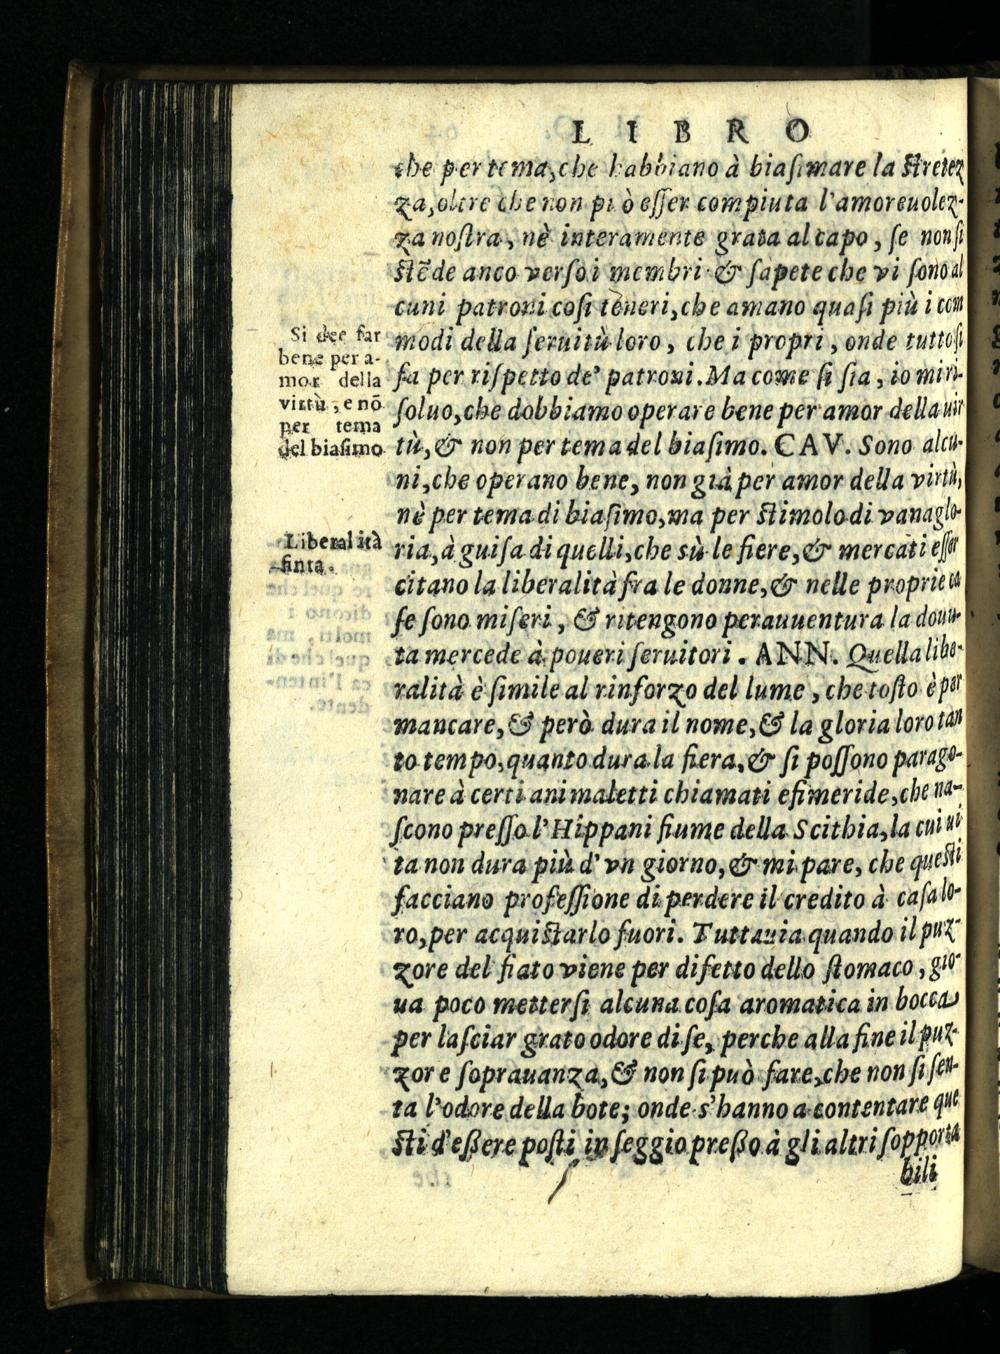 LIBRO
che per tema, che habbiano à biaſimare la ſtretez
za, oltre che non può eſſer compiuta l'amoreuolez-
za noſtra, nè interamente grata al capo, ſe non ſi
ſtẽde anco verſo i membri & ſapete che vi ſono al
cuni patroni coſi teneri, che amano quaſi più i com
modi della ſeruitù loro, che i propri, onde tutto ſi
fa per riſpetto de' patroni. Ma come ſi ſia, io mi ri-
ſoluo, che dobbiamo operare bene per amor della uir
tù, & non per tema del biaſimo. CAV. Sono alcu-
ni, che operano bene, non già per amor della virtù,
nè per tema di biaſimo, ma per ſtimolo di vanaglo-
ria, à guiſa di quelli, che sù le fiere, & mercati eſſer
citano la liberalità fra le donne, & nelle proprie ca
ſe ſono miſeri, & ritengono perauuentura la douu-
ta mercede à poueri ſeruitori. ANN. Quella libe-
ralità è ſimile al rinforzo del lume, che toſto è per
mancare, & però dura il nome, & la gloria loro tan
to tempo, quanto dura la fiera, & ſi poſſono parago-
nare à certi animaletti chiamati efimeride, che na-
ſcono preſſo l'Hippani fiume della Scithia, la cui ui
ta non dura più d'vn giorno, & mi pare, che queſti
facciano profeſſione di perdere il credito à caſa lo-
ro, per acquiſtarlo fuori. Tuttauia quando il puz-
zore del fiato viene per difetto dello ſtomaco, gio-
ua poco metterſi alcuna coſa aromatica in bocca
per laſciar grato odore di ſe, perche alla fine il puz-
zor e ſoprauanza, & non ſi può fare, che non ſi ſen-
ta l'odore della bote; onde s'hanno a contentare que
ſti d'eßere poſti in ſeggio preßo à gli altri ſopporta
bili
Si dee far
bene per a-
mor della
virtù, e nō
per tema
del biaſimo
Liberalità
finta.